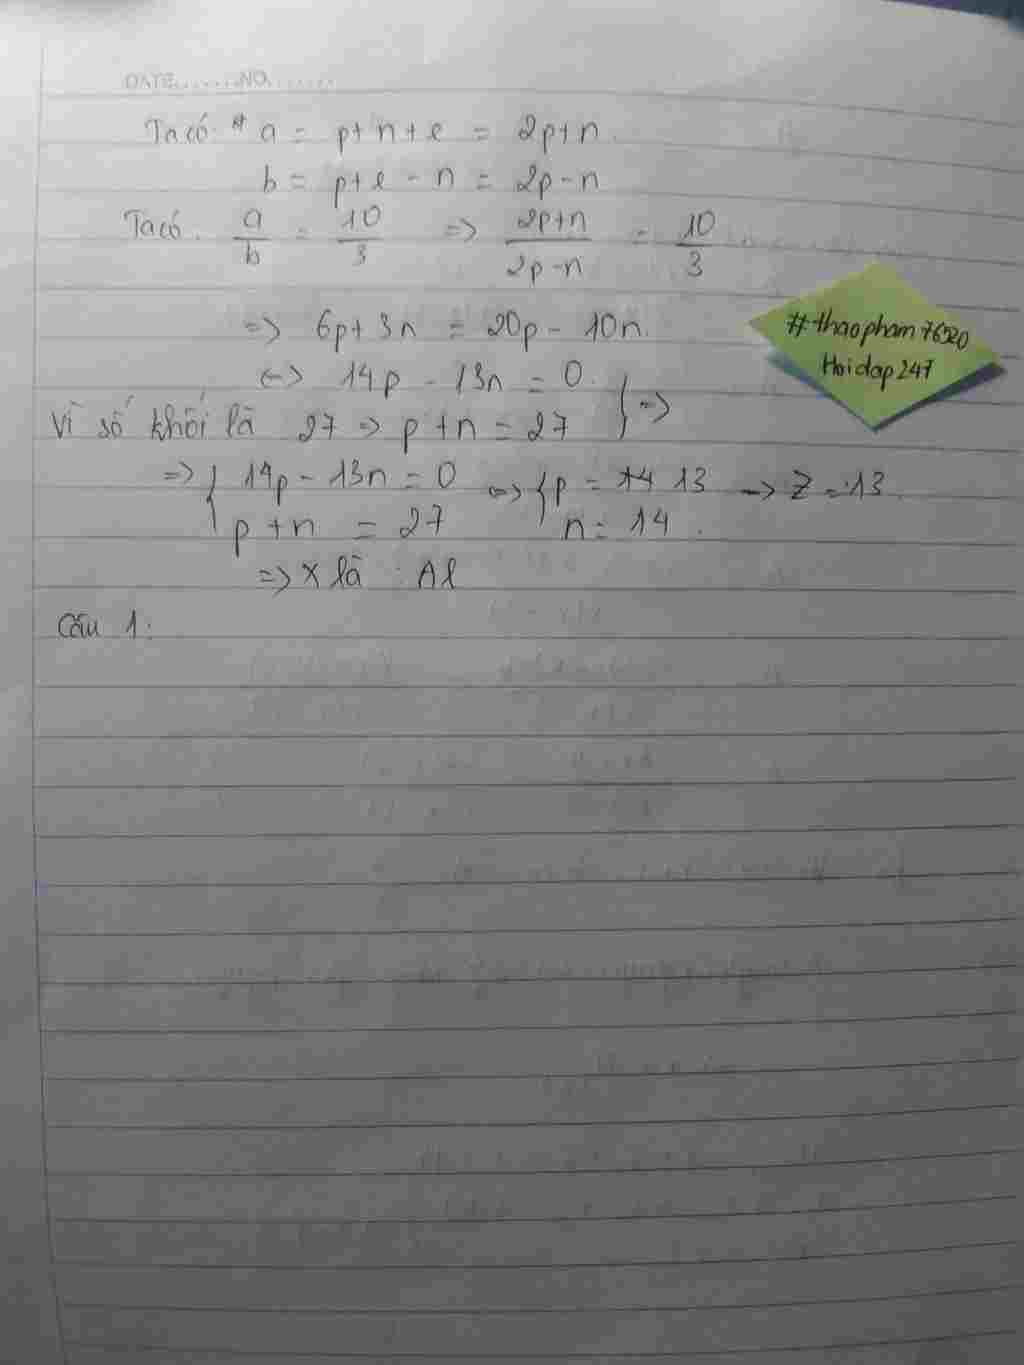 DATE.......NO.......
Ta có * a = p + n + e = 2p + n.
b = p + e - n = 2p - n
Ta có. a/b = 10/3 => (2p+n)/(2p-n) = 10/3
=> 6p + 3n = 20p - 10n.
<=> 14p - 13n = 0. } =>
Vì số khối là 27 => p + n = 27
=> { 14p - 13n = 0 <=> { p = 14 13 -> Z = 13.
p + n = 27 n = 14.
=> X là : Al
Câu 1:
#thaopham76520
Hoidap247